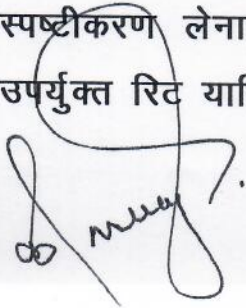 स्पष्टीकरण लेना
उपर्युक्त रिट